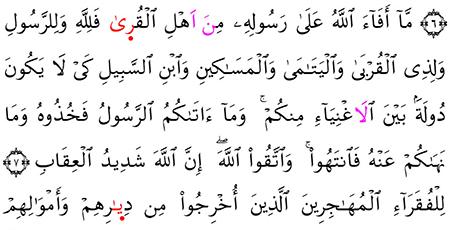 ﴿٦﴾ مَّآ أَفَآءَ ٱللَّهُ عَلَىٰ رَسُولِهِۦ مِنَ اَهْلِ ٱلْقُرٜىٰ فَلِلَّهِ وَلِلرَّسُولِ
وَلِذِى ٱلْقُرْبٜىٰ وَٱلْيَتَـٰمَىٰ وَٱلْمَسَـٰكِينِ وَٱبْنِ ٱلسَّبِيلِ كَىْ لَا يَكُونَ
دُولَةَۢ بَيْنَ ٱلَاغْنِيَآءِ مِنكُمْ ۚ وَمَآ ءَاتَىٰكُمُ ٱلرَّسُولُ فَخُذُوهُ وَمَا
نَهَىٰكُمْ عَنْهُ فَٱنتَهُوا۟ ۚ وَٱتَّقُوا۟ ٱللَّهَ ۖ إِنَّ ٱللَّهَ شَدِيدُ ٱلْعِقَابِ ﴿٧﴾
لِلْفُقَرَآءِ ٱلْمُهَـٰجِرِينَ ٱلَّذِينَ أُخْرِجُوا۟ مِن دِيٜـٰرِهِمْ وَأَمْوَٰلِهِمْ